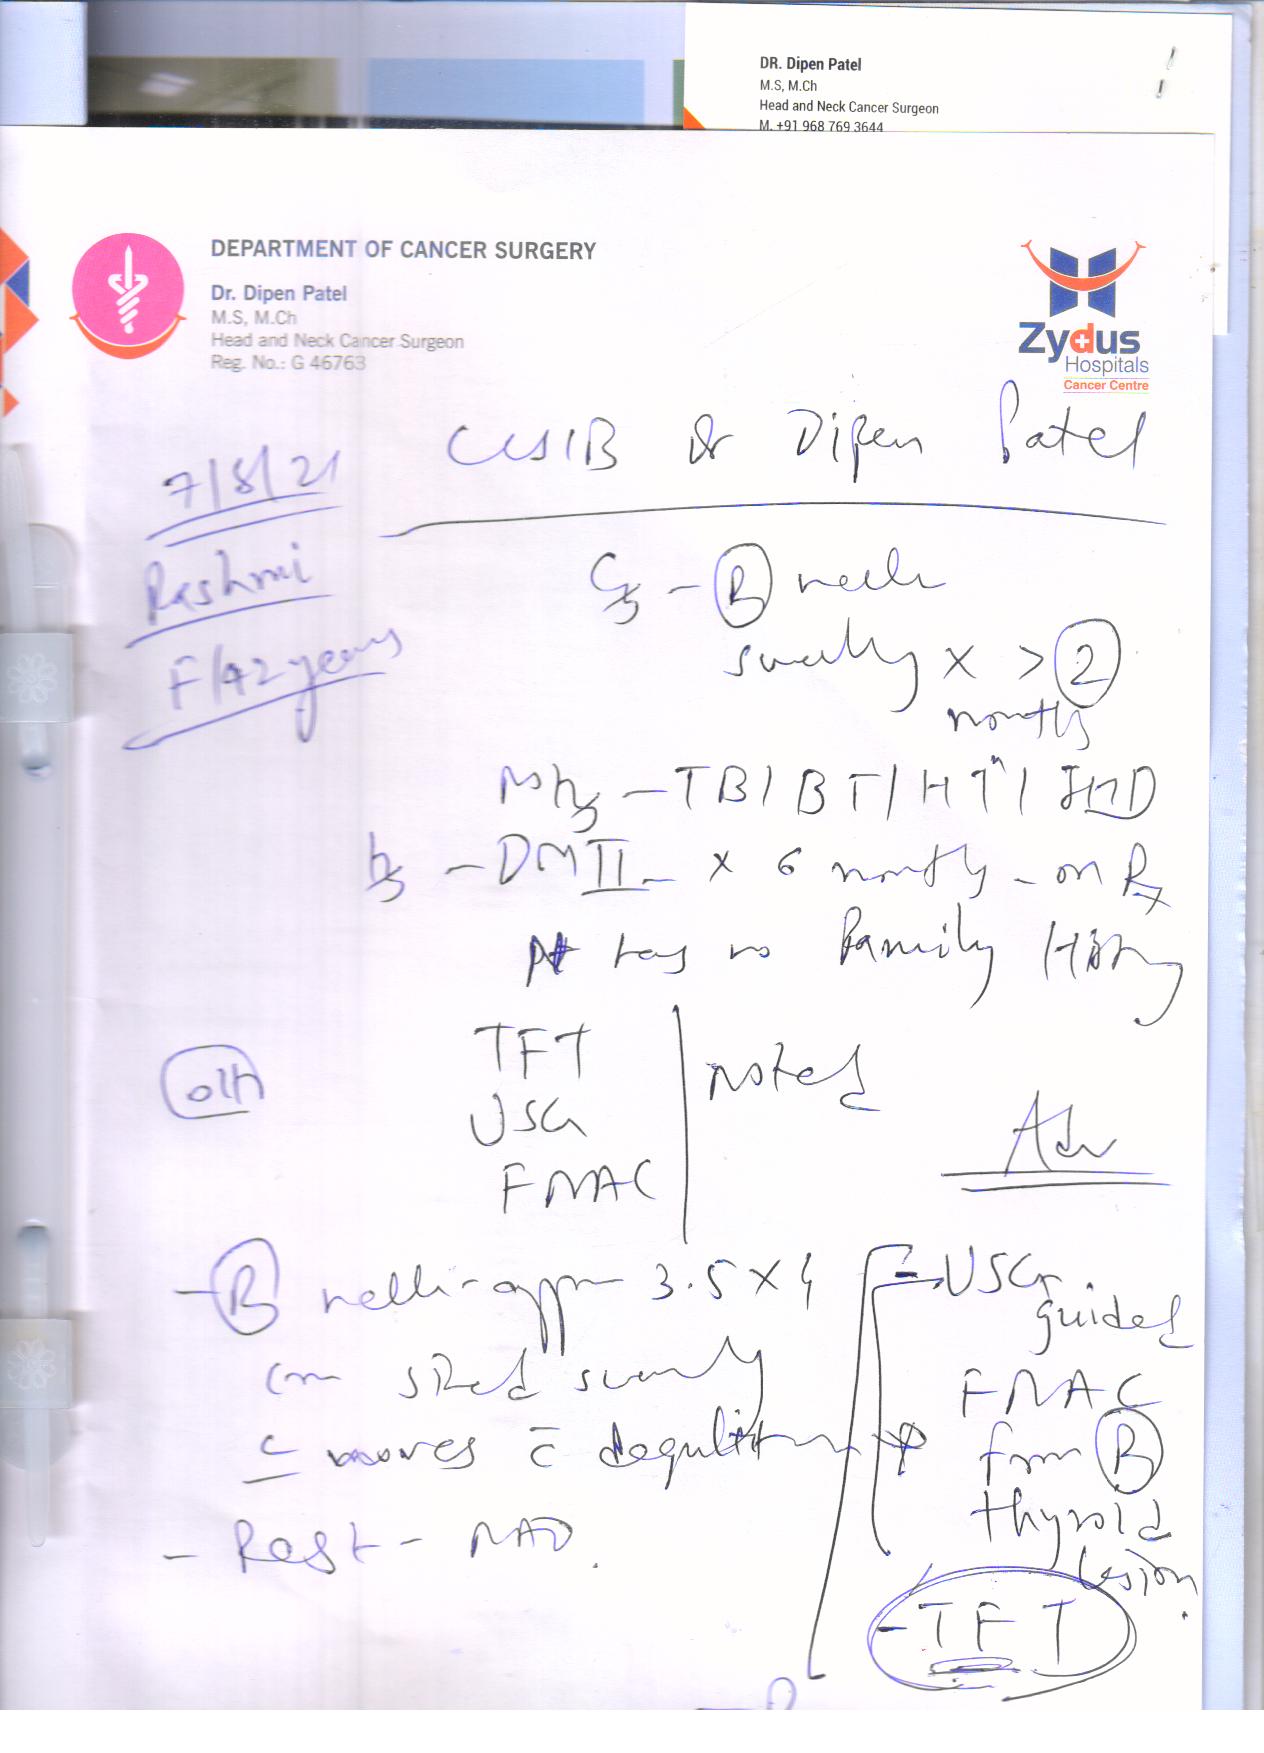 DR. Dipen Patel
M.S, M.Ch
Head and Neck Cancer Surgeon
M. +91 968 769 3644
DEPARTMENT OF CANCER SURGERY
Dr. Dipen Patel
M.S, M.Ch
Head and Neck Cancer Surgeon
Reg. No.: G 46763
Zydus
Hospitals
Cancer Centre
Dr Dipen Patel
7/8/21
Rashmi
F/42 years
- R neck
swelling x > 2
months
- TB / BT / HTn / IHD
- DM II x 6 months - on Rx
Pt has no Family History
o/h
TFT
USG
FNAC
noted
Adv
- R neck - appr 3.5 x 4
cm sized swelling
c moves c̄ degulitition
- Rest - NAD.
- USG.
guided
FNAC
from R
thyroid
lesion.
- TFT